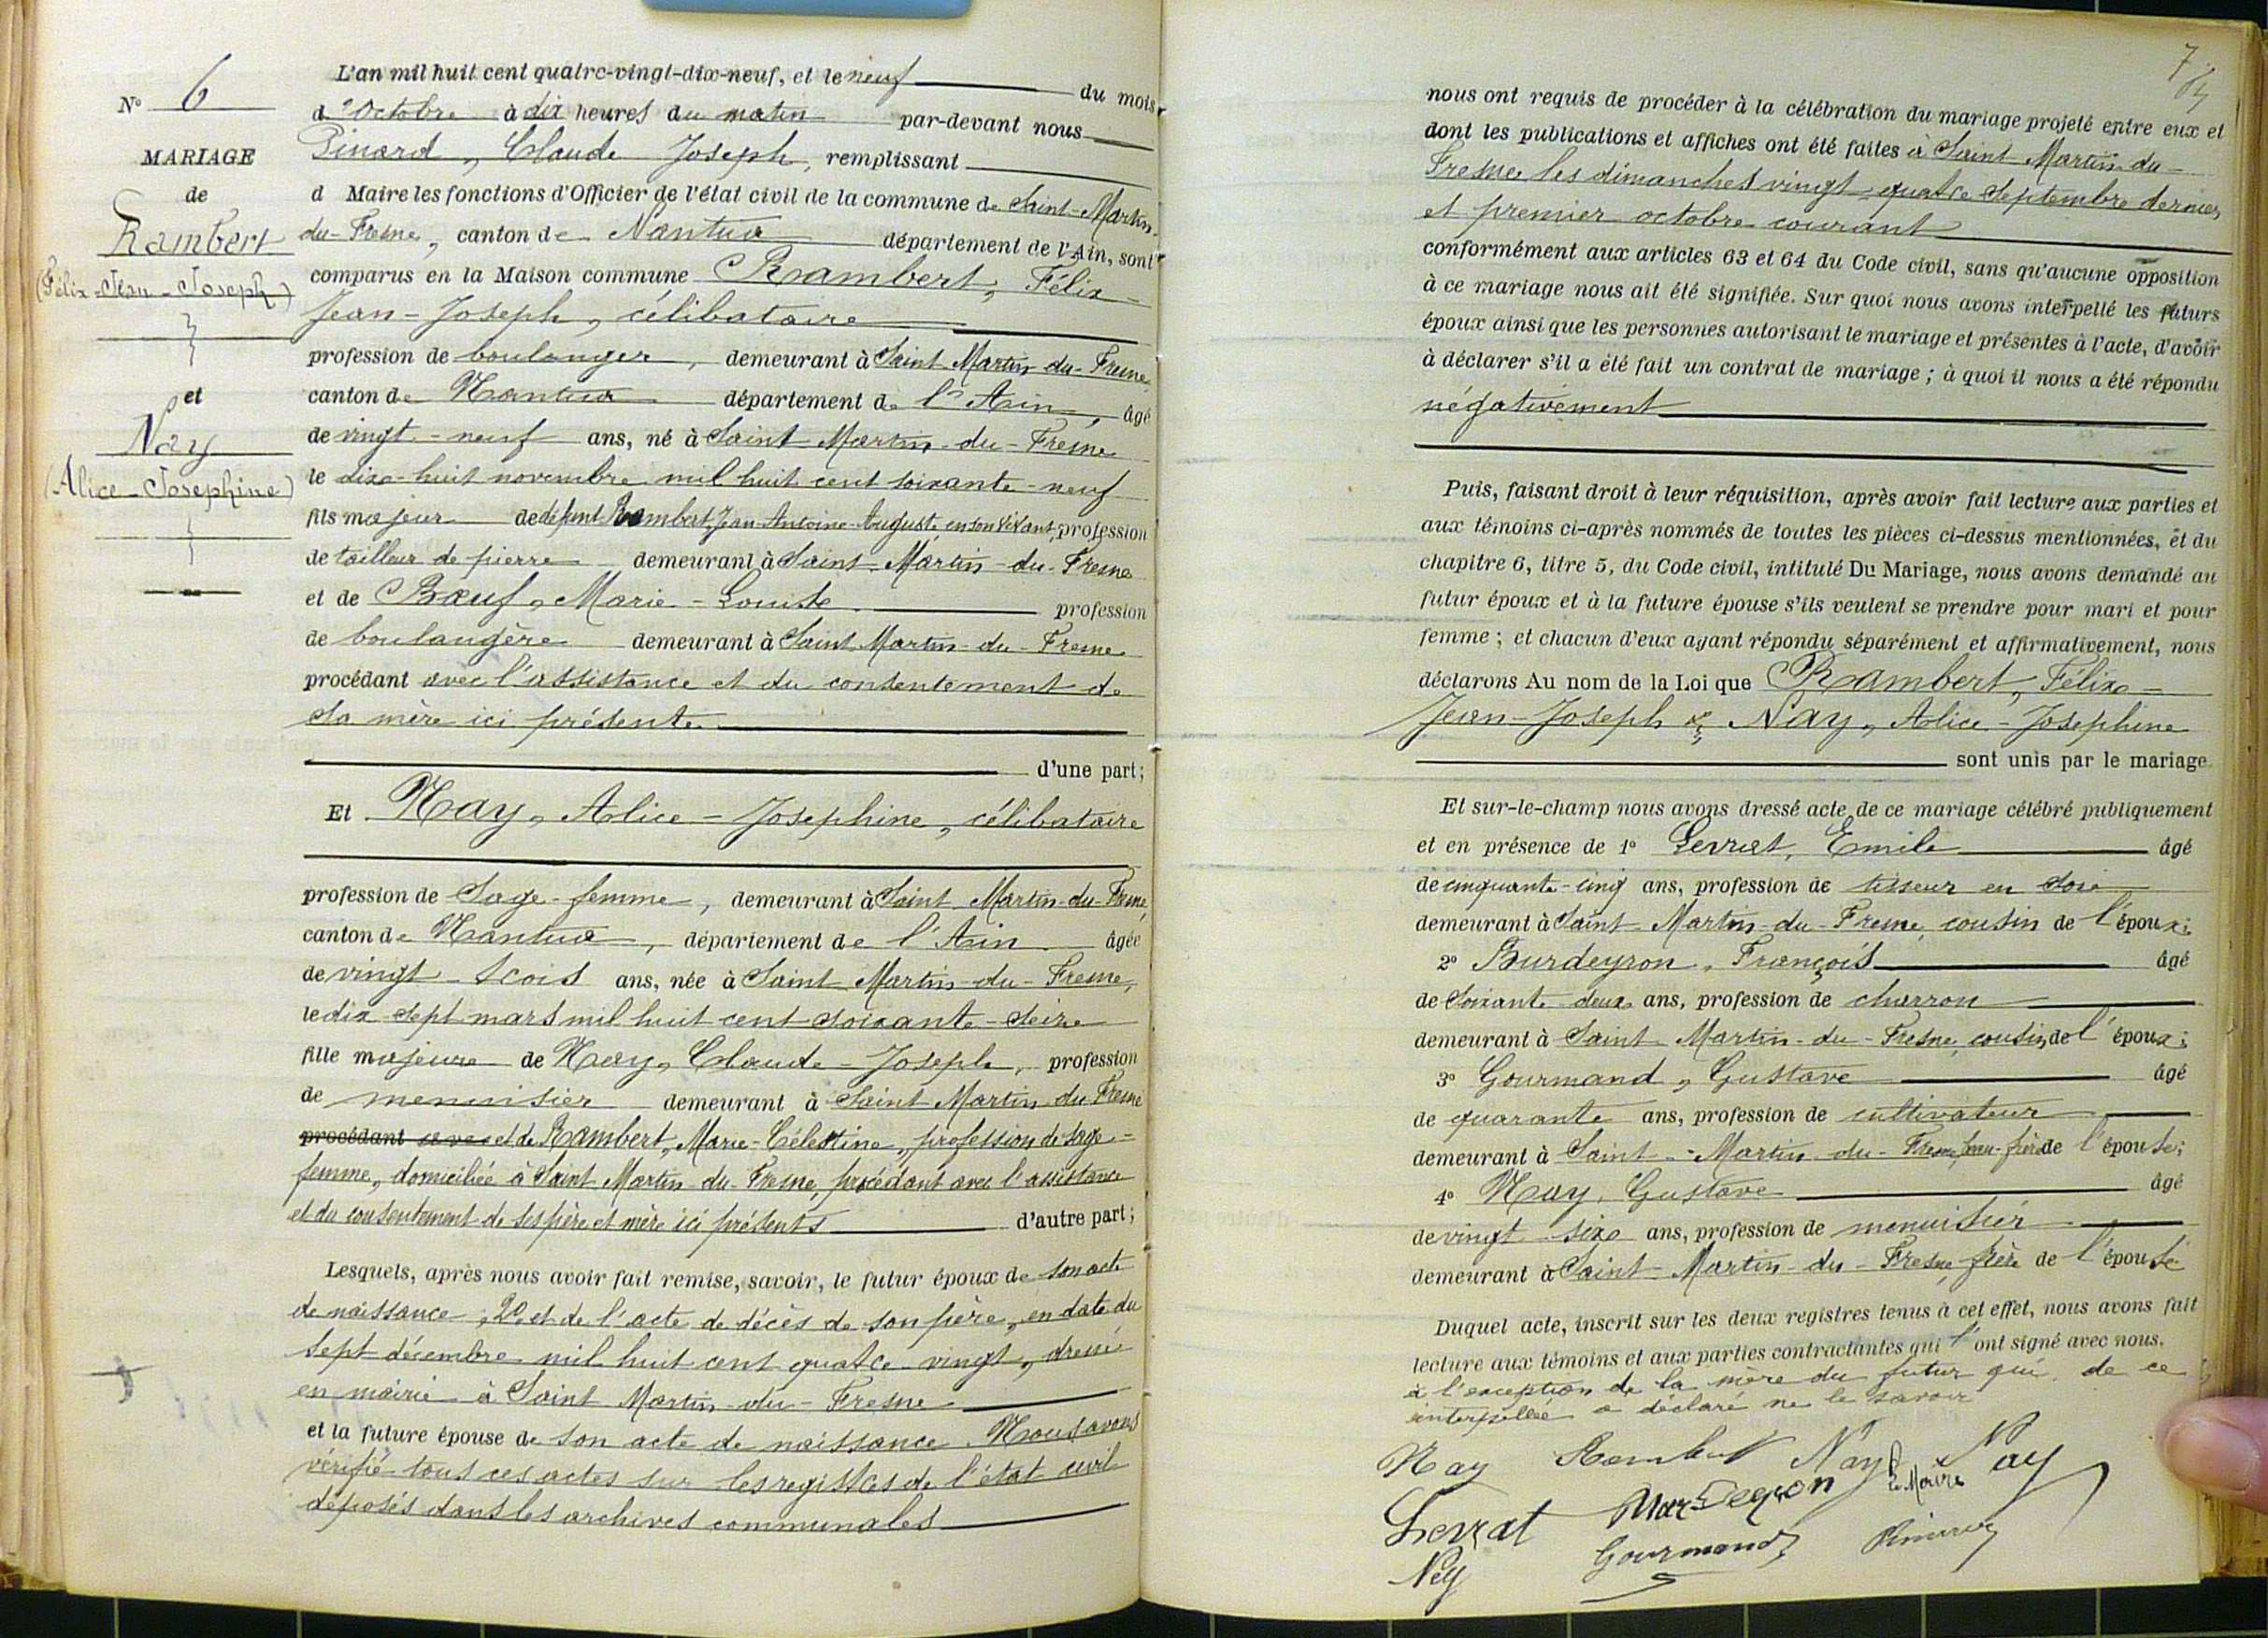 N° 6
MARIAGE
de
Rambert
(Félix-Jean-Joseph)
et
Nay
(Alice-Josephine)
L'an mil huit cent quatre-vingt-dix-neuf, et le neuf du mois
d'Octobre à dix heures du matin par-devant nous
Pinard, Claude Joseph, remplissant
d Maire les fonctions d'Officier de l'état civil de la commune de Saint-Martin-
du-Fresne, canton de Nantua département de l'Ain, sont
comparus en la Maison commune Rambert, Félix-
Jean-Joseph, célibataire
profession de boulanger, demeurant à Saint Martin-du-Fresne,
canton de Nantua département de l'Ain, âgé
de vingt-neuf ans, né à Saint Martin-du-Fresne
le dix-huit novembre mil huit cent soixante-neuf
fils majeur de défunt Rambert, Jean-Antoine-Auguste, en son vivant, profession
de tailleur de pierre demeurant à Saint-Martin-du-Fresne
et de Bœuf, Marie-Louise profession
de boulangère demeurant à Saint Martin-du-Fresne
procédant avec l'assistance et du consentement de
sa mère ici présente
d'une part;
Et Nay, Alice-Josephine, célibataire
profession de Sage-femme, demeurant à Saint Martin-du-Fresne,
canton de Nantua, département de l'Ain âgée
de vingt-trois ans, née à Saint Martin-du-Fresne,
le dix sept mars mil huit cent soixante-seize
fille majeure de Nay, Claude-Joseph, profession
de menuisier demeurant à Saint Martin du Fresne
procédant avec et de Rambert, Marie-Célestine, profession de sage-
femme, domiciliée à Saint Martin-du-Fresne, procédant avec l'assistance
et du consentement de ses père et mère ici présents d'autre part;
Lesquels, après nous avoir fait remise, savoir, le futur époux de son acte
de naissance, 2° et de l'acte de décès de son père, en date du
sept décembre mil huit cent quatre-vingt, dressé
en mairie à Saint Martin-du-Fresne
et la future épouse de son acte de naissance. Nous avons
vérifié tous ces actes sur les registres de l'état civil
déposés dans les archives communales
7
nous ont requis de procéder à la célébration du mariage projeté entre eux et
dont les publications et affiches ont été faites à Saint Martin-du-
Fresne les dimanches vingt-quatre Septembre dernier
et premier octobre courant
conformément aux articles 63 et 64 du Code civil, sans qu'aucune opposition
à ce mariage nous ait été signifiée. Sur quoi nous avons interpellé les futurs
époux ainsi que les personnes autorisant le mariage et présentes à l'acte, d'avoir
à déclarer s'il a été fait un contrat de mariage; à quoi il nous a été répondu
négativement
Puis, faisant droit à leur réquisition, après avoir fait lecture aux parties et
aux témoins ci-après nommés de toutes les pièces ci-dessus mentionnées, et du
chapitre 6, titre 5, du Code civil, intitulé Du Mariage, nous avons demandé au
futur époux et à la future épouse s'ils veulent se prendre pour mari et pour
femme; et chacun d'eux ayant répondu séparément et affirmativement, nous
déclarons Au nom de la Loi que Rambert, Félix-
Jean-Joseph & Nay, Alice-Josephine
sont unis par le mariage.
Et sur-le-champ nous avons dressé acte de ce mariage célébré publiquement
et en présence de 1° Levrat, Emile âgé
de cinquante-cinq ans, profession de tisseur en soie
demeurant à Saint-Martin-du-Fresne, cousin de l'époux;
2° Burdeyron, François âgé
de soixante-deux ans, profession de charron
demeurant à Saint Martin-du-Fresne, cousin de l'époux;
3° Gourmand, Gustave âgé
de quarante ans, profession de cultivateur
demeurant à Saint-Martin-du-Fresne, beau-frère de l'épouse;
4° Nay, Gustave âgé
de vingt-six ans, profession de menuisier
demeurant à Saint-Martin-du-Fresne, frère de l'épouse
Duquel acte, inscrit sur les deux registres tenus à cet effet, nous avons fait
lecture aux témoins et aux parties contractantes qui l'ont signé avec nous.
à l'exception de la mère du futur qui, de ce
interpellée a déclaré ne le savoir
Nay Rambert Nay Nay
Le Maire
Levrat Gourmand Pinard
Ney